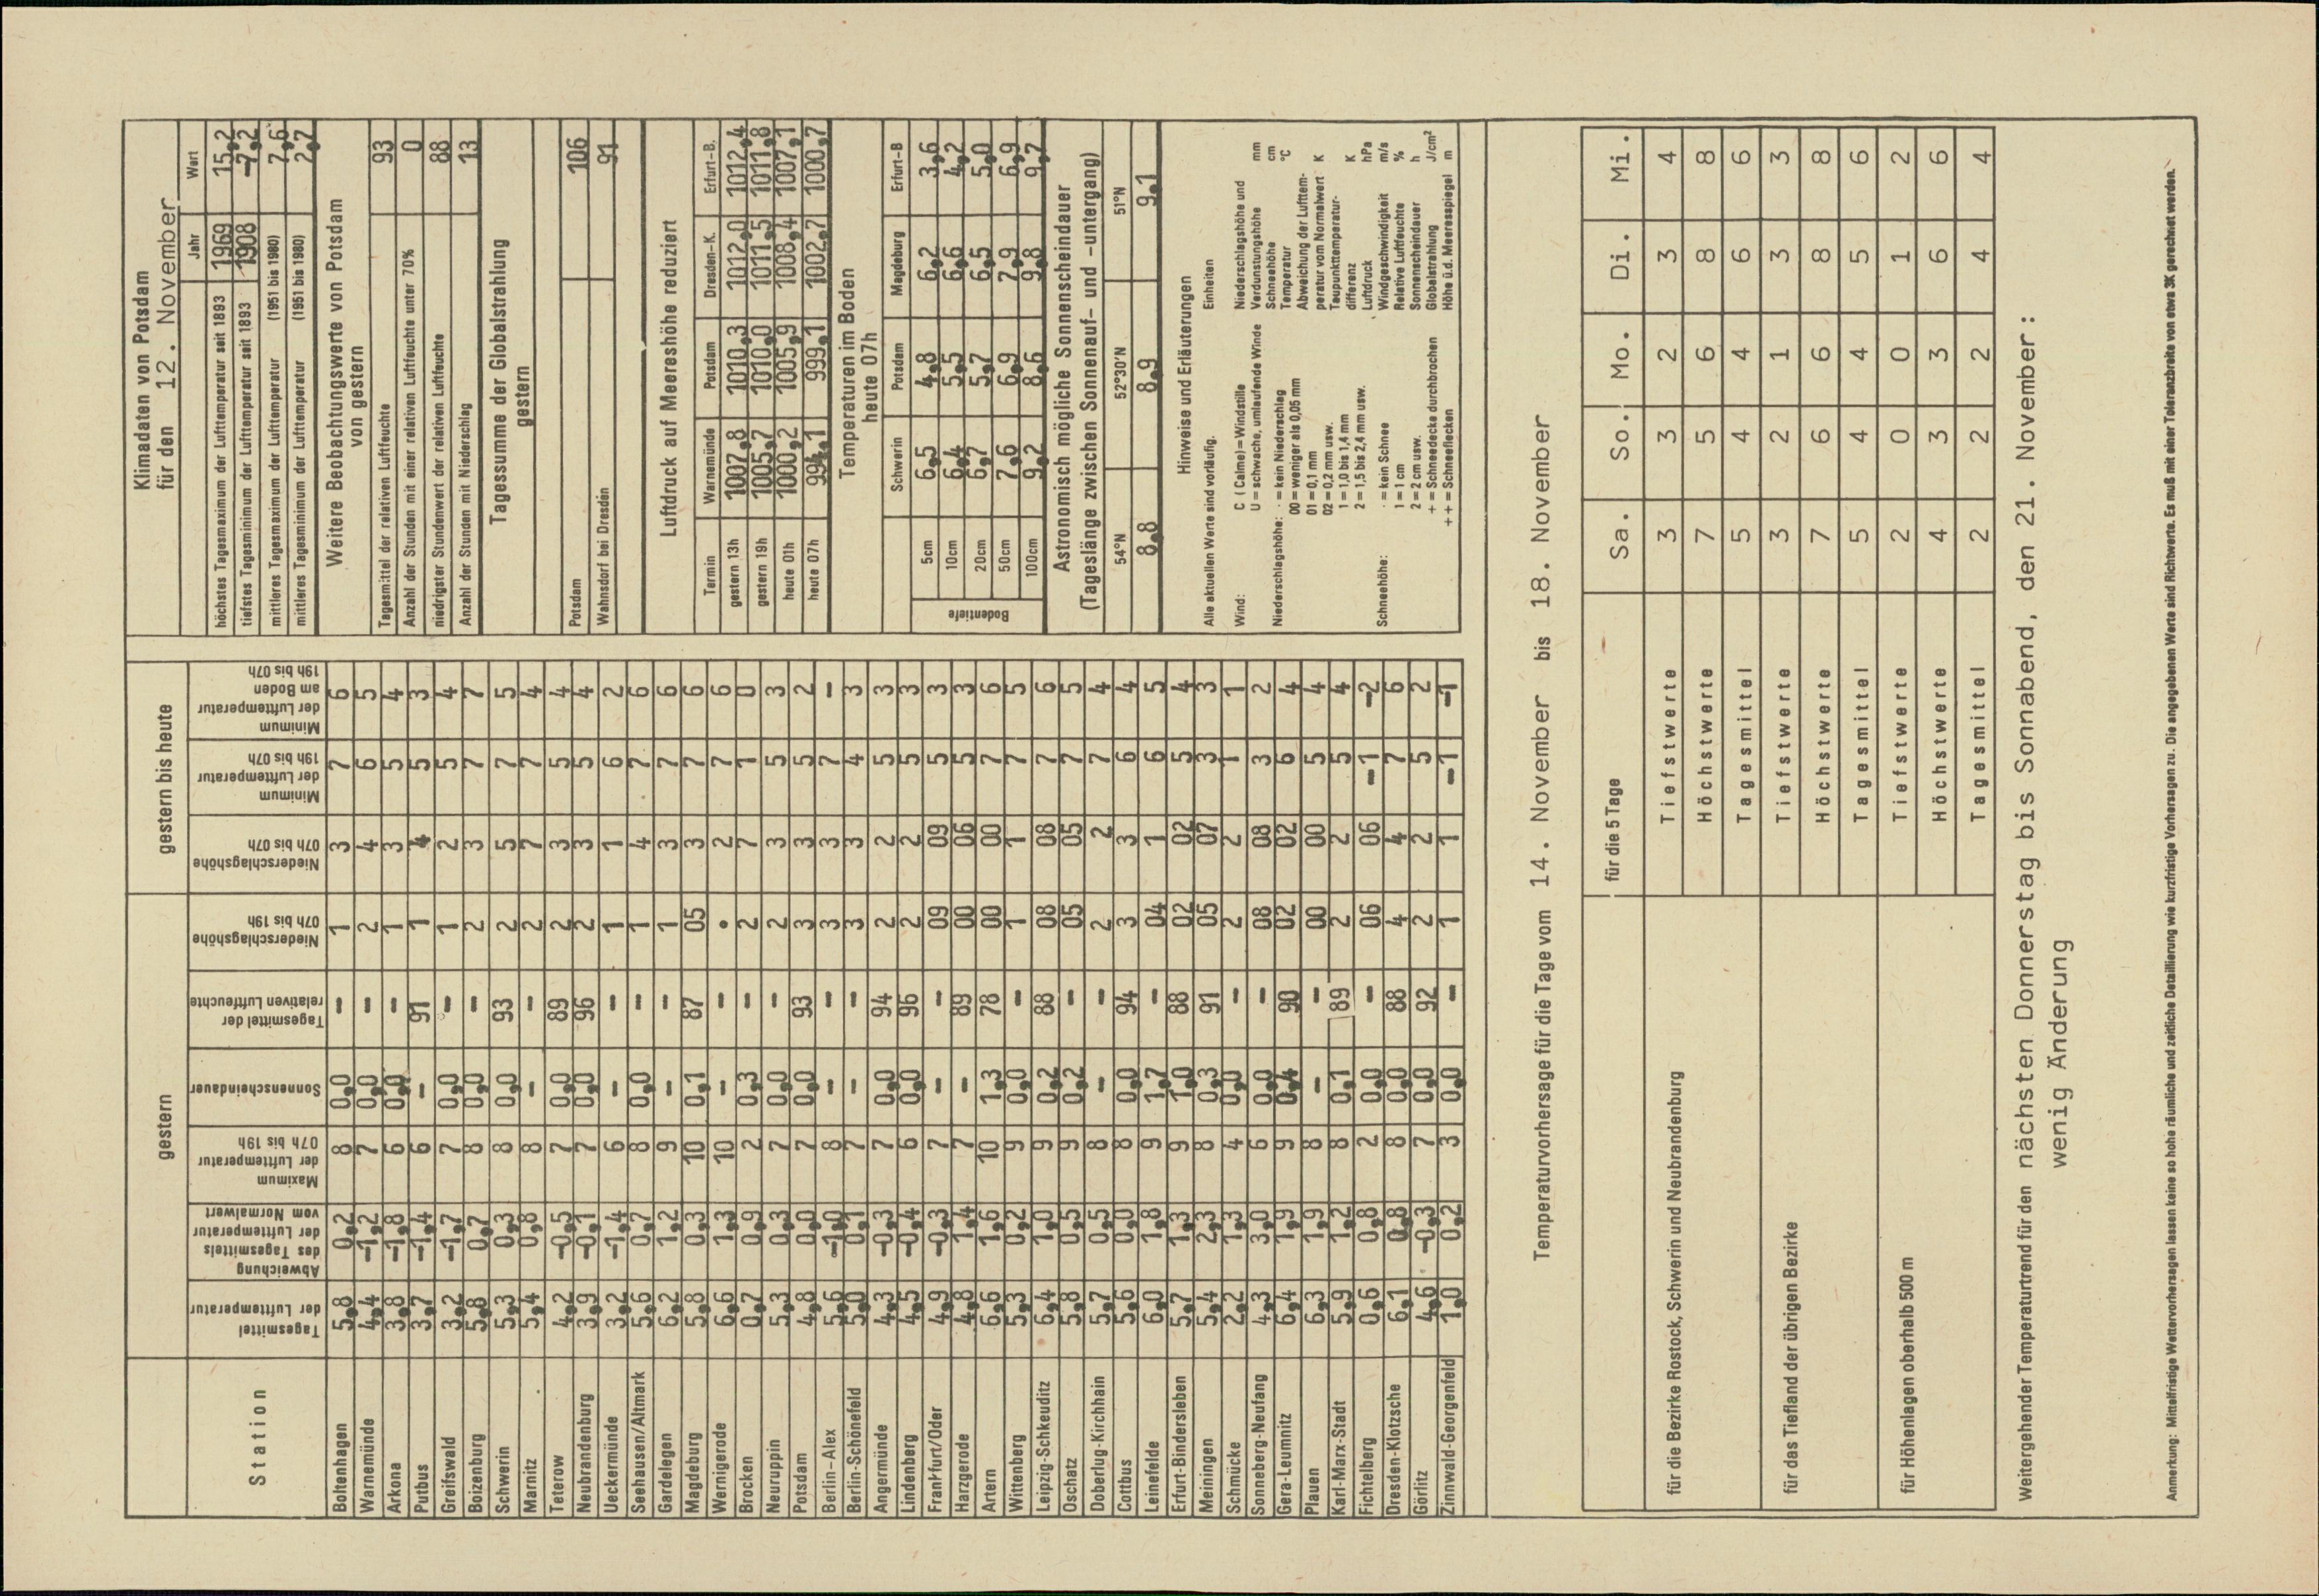 gestern
gestern bis heute
Station
Tagesmittel der Lufttemperatur
Abweichung des Tagesmittels der Lufttemperatur vom Normalwert
Maximum der Lufttemperatur 07h bis 19h
Sonnenscheindauer
Tagesmittel der relativen Luftfeuchte
Niederschlagshöhe 07h bis 19h
Niederschlagshöhe 07h bis 07h
Minimum der Lufttemperatur 19h bis 07h
Minimum der Lufttemperatur am Boden 19h bis 07h
Boltenhagen 5,8 0,2 8 0,0 – 1 3 7 6
Warnemünde 4,4 –1,2 7 0,0 – 2 4 6 5
Arkona 3,8 –1,8 6 0,0 – 1 3 5 4
Putbus 3,7 –1,4 6 – 91 1 4 5 3
Greifswald 3,2 –1,7 7 0,0 – 1 2 5 4
Boizenburg 5,8 0,7 8 0,0 – 2 3 7 7
Schwerin 5,3 0,3 8 0,0 93 2 5 7 5
Marnitz 5,4 0,8 8 – – 2 7 7 4
Teterow 4,2 –0,5 7 0,0 89 2 3 5 4
Neubrandenburg 3,9 –0,1 7 0,0 96 2 3 5 4
Ueckermünde 3,2 –1,4 6 – – 1 1 6 2
Seehausen/Altmark 5,6 0,7 8 0,0 – 1 4 7 6
Gardelegen 6,2 1,2 9 – – 1 3 7 6
Magdeburg 5,8 0,3 10 0,1 87 05 3 7 6
Wernigerode 6,6 1,3 10 – – . 2 7 6
Brocken 0,7 0,9 2 0,3 – 2 7 1 0
Neuruppin 5,3 0,3 7 0,0 – 2 3 5 3
Potsdam 4,8 0,0 7 0,0 93 3 3 5 2
Berlin–Alex 5,6 –1,0 8 – – 3 3 7 –
Berlin-Schönefeld 5,0 0,1 7 – – 3 3 4 3
Angermünde 4,3 –0,3 7 0,0 94 2 2 5 3
Lindenberg 4,5 –0,4 6 0,0 96 2 2 5 3
Frankfurt/Oder 4,9 –0,3 7 – – 09 09 5 3
Harzgerode 4,8 1,4 7 – 89 00 06 5 3
Artern 6,6 1,6 10 1,3 78 00 00 7 6
Wittenberg 5,3 0,2 9 0,0 – 1 1 7 5
Leipzig-Schkeuditz 6,4 1,0 9 0,2 88 08 08 7 6
Oschatz 5,8 0,5 9 0,2 – 05 05 7 5
Doberlug-Kirchhain 5,7 0,5 8 – – 2 2 7 4
Cottbus 5,6 0,0 8 0,0 94 3 3 6 4
Leinefelde 6,0 1,8 9 1,7 – 04 1 6 5
Erfurt-Bindersleben 5,7 1,3 9 1,0 88 02 02 5 4
Meiningen 5,4 2,3 8 0,3 91 05 07 3 3
Schmücke 2,2 1,3 4 0,0 – 2 2 1 1
Sonneberg-Neufang 4,3 3,0 6 0,0 – 08 08 3 2
Gera-Leumnitz 6,4 1,9 9 0,4 90 02 02 6 4
Plauen 6,3 1,9 8 – – 00 00 5 4
Karl-Marx-Stadt 5,9 1,2 8 0,1 89 2 2 5 4
Fichtelberg 0,6 0,8 2 0,0 – 06 06 –1 –2
Dresden-Klotzsche 6,1 0,8 8 0,0 88 4 4 7 6
Görlitz 4,6 –0,3 7 0,0 92 2 2 5 2
Zinnwald-Georgenfeld 1,0 0,2 3 0,0 – 1 1 –1 –1
Klimadaten von Potsdam
für den 12. November
Jahr Wert
höchstes Tagesmaximum der Lufttemperatur seit 1893 1969 15,2
tiefstes Tagesminimum der Lufttemperatur seit 1893 1908 –7,2
mittleres Tagesmaximum der Lufttemperatur (1951 bis 1980) 7,6
mittleres Tagesminimum der Lufttemperatur (1951 bis 1980) 2,7
Weitere Beobachtungswerte von Potsdam
von gestern
Tagesmittel der relativen Luftfeuchte 93
Anzahl der Stunden mit einer relativen Luftfeuchte unter 70% 0
niedrigster Stundenwert der relativen Luftfeuchte 88
Anzahl der Stunden mit Niederschlag 13
Tagessumme der Globalstrahlung
gestern
Potsdam 106
Wahnsdorf bei Dresden 91
Luftdruck auf Meereshöhe reduziert
Termin Warnemünde Potsdam Dresden-K. Erfurt-B.
gestern 13h 1007,8 1010,3 1012,0 1012,4
gestern 19h 1005,7 1010,0 1011,5 1011,8
heute 01h 1000,2 1005,9 1008,4 1007,1
heute 07h 994,1 999,1 1002,7 1000,7
Temperaturen im Boden
heute 07h
Schwerin Potsdam Magdeburg Erfurt-B
Bodentiefe
5cm 6,5 4,8 6,2 3,6
10cm 6,4 5,5 6,6 4,2
20cm 6,7 5,7 6,5 5,0
50cm 7,6 6,9 7,9 6,9
100cm 9,2 8,6 9,8 9,7
Astronomisch mögliche Sonnenscheindauer
(Tageslänge zwischen Sonnenauf- und -untergang)
54°N 52°30'N 51°N
8,8 8,9 9,1
Hinweise und Erläuterungen
Alle aktuellen Werte sind vorläufig.
Wind: C (Calme) = Windstille
U = schwache, umlaufende Winde
Niederschlagshöhe: · = kein Niederschlag
00 = weniger als 0,05 mm
01 = 0,1 mm
02 = 0,2 mm usw.
1 = 1,0 bis 1,4 mm
2 = 1,5 bis 2,4 mm usw.
Schneehöhe: · = kein Schnee
1 = 1 cm
2 = 2 cm usw.
+ = Schneedecke durchbrochen
++ = Schneeflecken
Einheiten
Niederschlagshöhe und
Verdunstungshöhe mm
Schneehöhe cm
Temperatur °C
Abweichung der Lufttem-
peratur vom Normalwert K
Taupunkttemperatur-
differenz K
Luftdruck hPa
Windgeschwindigkeit m/s
Relative Luftfeuchte %
Sonnenscheindauer h
Globalstrahlung J/cm²
Höhe ü.d. Meeresspiegel m
Temperaturvorhersage für die Tage vom 14. November bis 18. November
für die 5 Tage Sa. So. Mo. Di. Mi.
für die Bezirke Rostock, Schwerin und Neubrandenburg
Tiefstwerte 3 3 2 3 4
Höchstwerte 7 5 6 8 8
Tagesmittel 5 4 4 6 6
für das Tiefland der übrigen Bezirke
Tiefstwerte 3 2 1 3 3
Höchstwerte 7 6 6 8 8
Tagesmittel 5 4 4 5 6
für Höhenlagen oberhalb 500 m
Tiefstwerte 2 0 0 1 2
Höchstwerte 4 3 3 6 6
Tagesmittel 2 2 2 4 4
Weitergehender Temperaturtrend für den nächsten Donnerstag bis Sonnabend, den 21. November:
wenig Änderung
Anmerkung: Mittelfristige Wettervorhersagen lassen keine so hohe räumliche und zeitliche Detaillierung wie kurzfristige Vorhersagen zu. Die angegebenen Werte sind Richtwerte. Es muß mit einer Toleranzbreite von etwa 3K gerechnet werden.